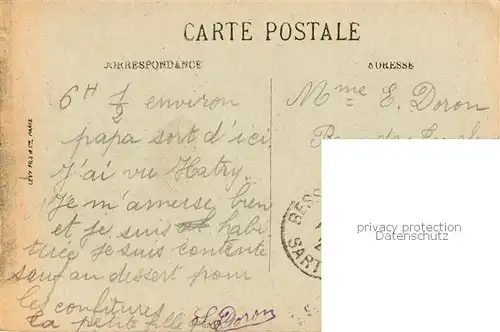 CARTE POSTALE
CORRESPONDANCE
ADRESSE
6H 1/2 environ
papa sort d'ici
J'ai vu Hatry.
Je m'amuse bien
et je suis habi
tuée je suis contente
sauf au dessert pour
les confitures
La petite fille Doron
Mme E. Doron
LEVY FILS & Cie, PARIS
SART
privacy protection
Datenschutz